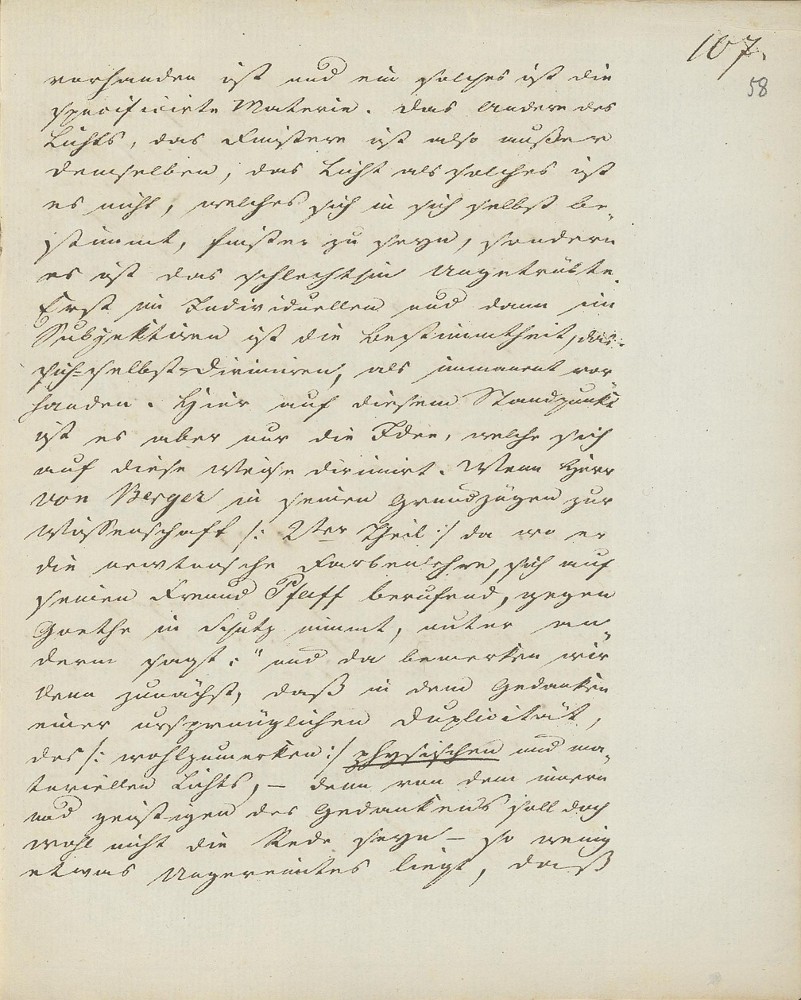 107.
58
vorhanden ist und ein solches ist die
specificirte Materie. Das Andere des
Lichts, das Finstere ist also außer
demselben; das Licht als solches ist
es nicht, welches sich in sich selbst be„
stimmt, finster zu seyn, sondern
es ist das schlechthin Ungetrübte.
Erst im Individuellen und dann im
Subjektiven ist die Bestimmtheit, das
sich-selbst-Dirimiren, als immanent vor
handen. Hier auf diesem Standpunkt
ist es aber nur die Idee, welche sich
auf diese Weise dirimirt. Wenn Herr
von Berger in seinen Grundzügen zur
Wissenschaft /: 2ter Theil :/ da wo er
die newtonsche Farbenlehre, sich auf
seinen Freund Pfaff berufend, gegen
Goethe in Schutz nimmt, unter an„
derm sagt: "und da bemerken wir
denn zunächst, daß in dem Gedanken
einer ursprünglichen Duplicität,
des /: wohlzumerken :/ physischen und ma„
teriellen Lichts, – denn von dem innern
und geistigen des Gedankens soll doch
wohl nicht die Rede seyn – so wenig
etwas Ungereimtes liegt, daß